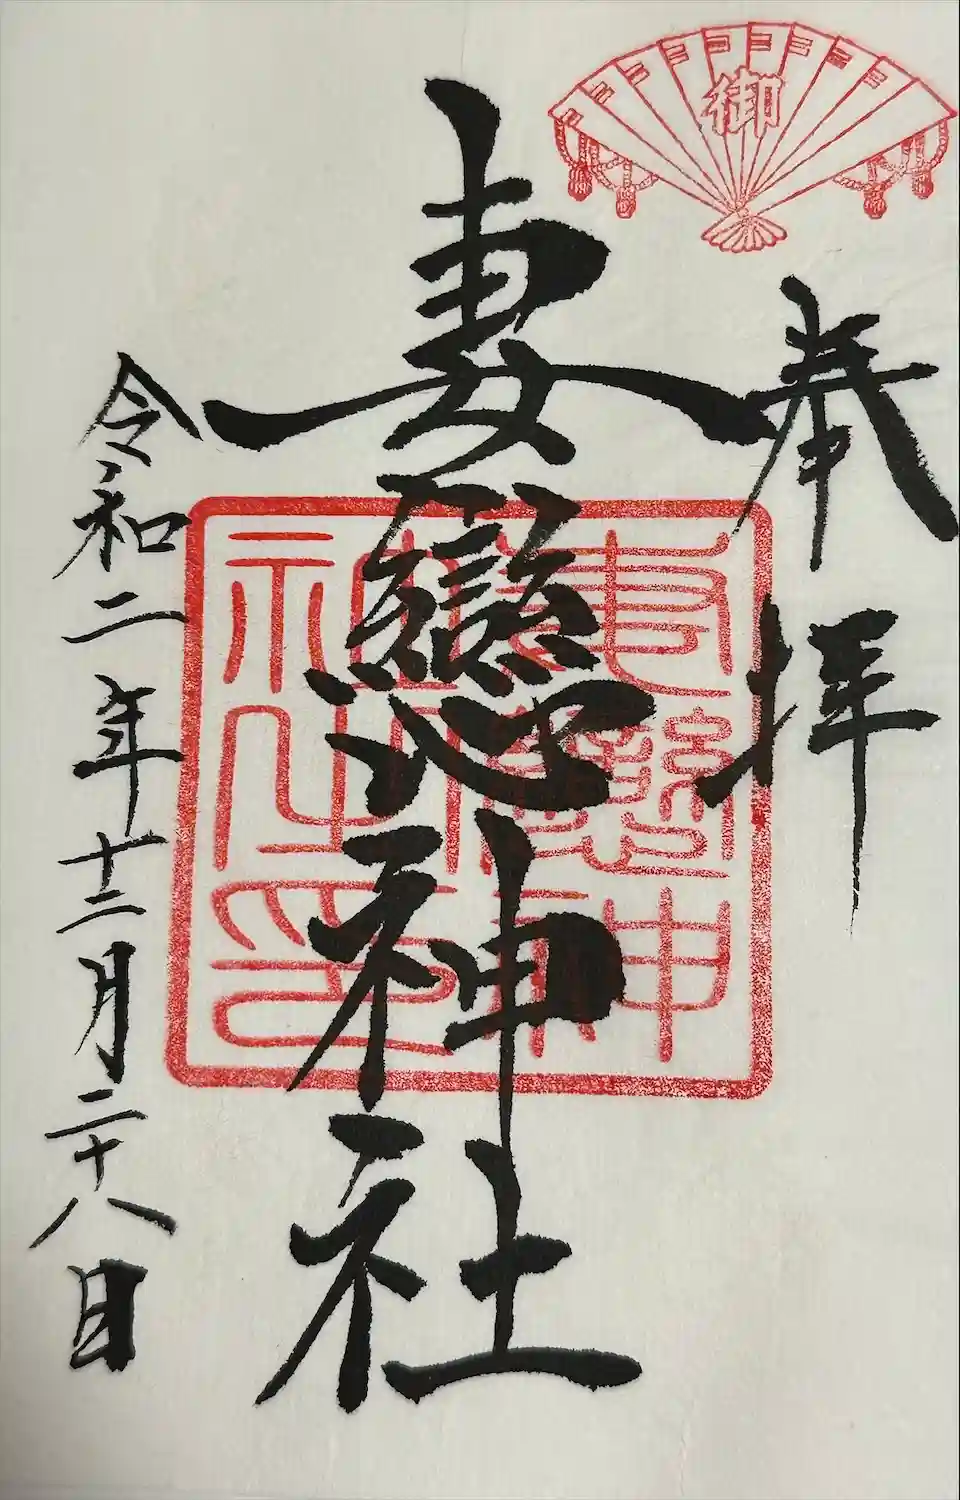 御
奉拝
妻戀神社
妻戀神社之印
令和二年十二月二十八日